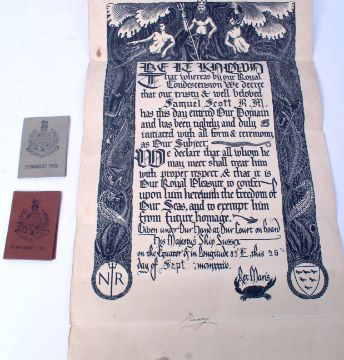 BE IT KNOWN
That whereas by our Royal
Condescension We decree
that our trusty & well beloved
Samuel Scott R.M.
has this day entered Our Domain
and has been rightly and duly
initiated with all form & ceremony
as Our Subject.
We declare that all whom he
may meet shall treat him
with proper respect & that it is
Our Royal Pleasure to confer
upon him herewith the freedom of
Our Seas, and to exempt him
from future homage.
Given under Our Hand at Our Court on board
His Majesty's Ship Sussex
on the Equator & in Longitude 85 E, this 26
day of Sept.
Rex Maris.
N R
PERMANENT PASS
PERMANENT PASS